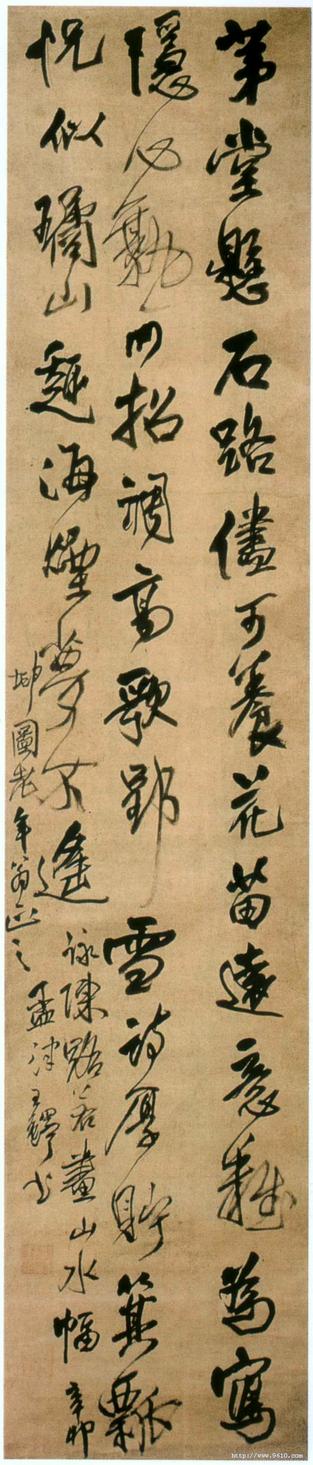 茅堂懸石路儘可養花苗遠意難為寫
隱心招調高歌郢雪詩厚貯瓢
怳似璚山趣海煙夢不遙
詠陳路若畫山水幅 辛卯
坤圖老年翁正之 孟津王鐸書
http://www.9610.com